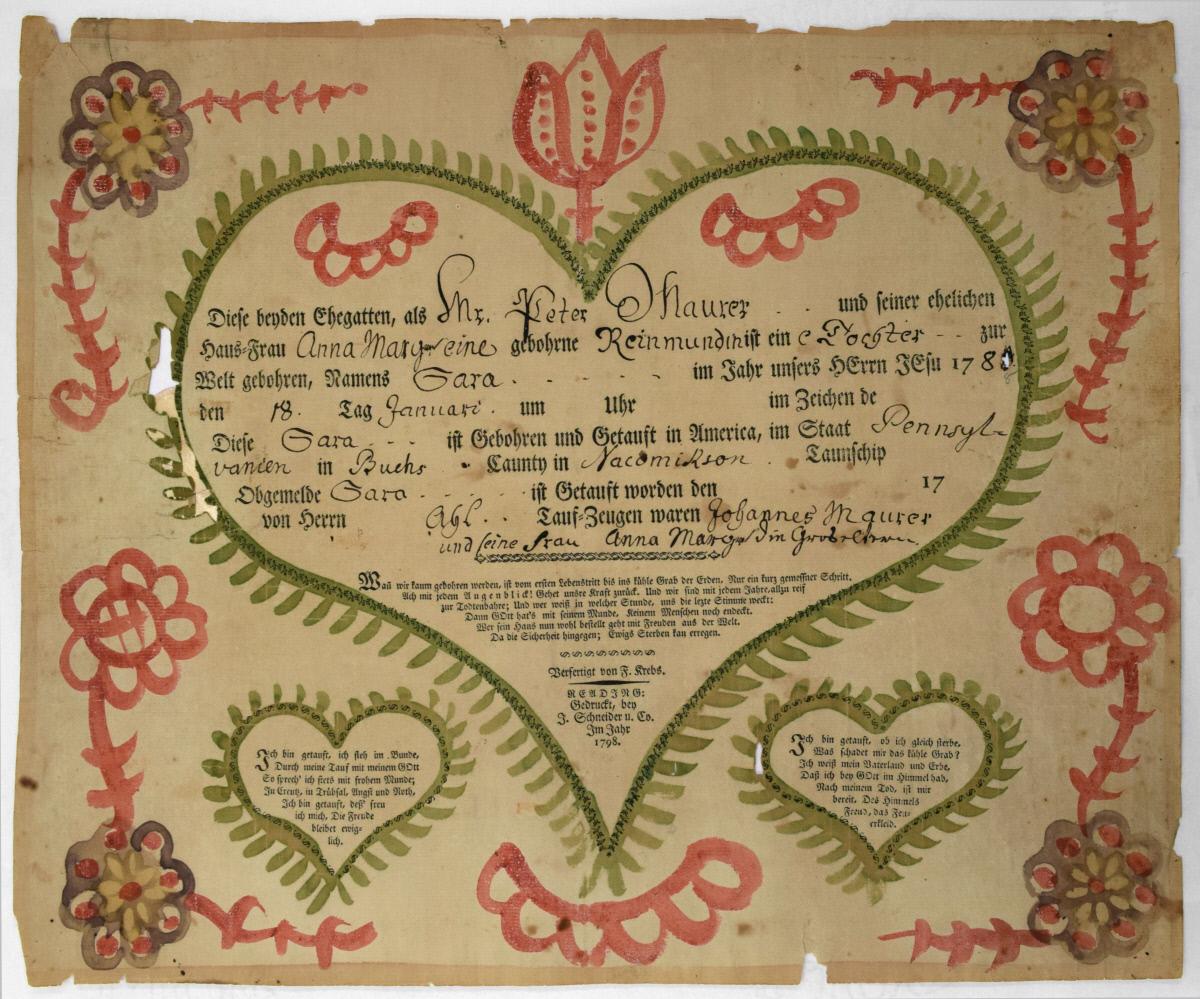 Diese beyden Ehegatten, als Mr. Peter Maurer und seiner ehelichen
Haus-Frau Anna Margreine gebohrne Reinmundin ist ein e Tochter zur
Welt gebohren, Namens Sara im Jahr unsers HErrn JEsu 178
den 18. Tag Januari. um Uhr im Zeichen de
Diese Sara ist Gebohren und Getauft in America, im Staat Pennsyl-
vanien in Buchs Caunty in Nacomikson Taunschip
Obgemelde Sara ist Getauft worden den 17
von Herrn Ahl. Tauf-Zeugen waren Johannes Maurer
und seine frau Anna Margredin Groseltern.
Wañ wir kaum gebohren werden, ist vom ersten Lebenstritt bis ins kühle Grab der Erden. Nur ein kurz gemessner Schritt.
Ach mit jedem Augenblick! Gehet unsre Kraft zurück. Und wir sind mit jedem Jahre, allzu reif
zur Todtenbahre; Und wer weiß in welcher Stunde, uns die lezte Stimme weckt:
Dann GOtt hat's mit seinem Munde. Keinem Menschen noch endeckt.
Wer sein Haus nun wohl bestellt geht mit Freuden aus der Welt.
Da die Sicherheit hingegen; Ewigs Sterben kan erregen.
Verfertigt von F. Krebs.
READING:
Gedruckt, bey
J. Schneider u. Co.
Im Jahr
1798.
Ich bin getauft, ich steh im Bunde,
Durch meine Tauf mit meinem GOtt
So sprech' ich stets mit frohem Munde;
In Creutz, in Trübsal, Angst und Noth,
Ich bin getauft, deß' freu
ich mich, Die Freude
bleibet ewig-
lich.
Ich bin getauft, ob ich gleich sterbe,
Was schadet mir das kühle Grab?
Ich weiß mein Vaterland und Erbe,
Daß ich bey GOtt im Himmel hab,
Nach meinem Tod, ist mir
bereit, Des Himmels
Freud, das Feu-
erkleid.